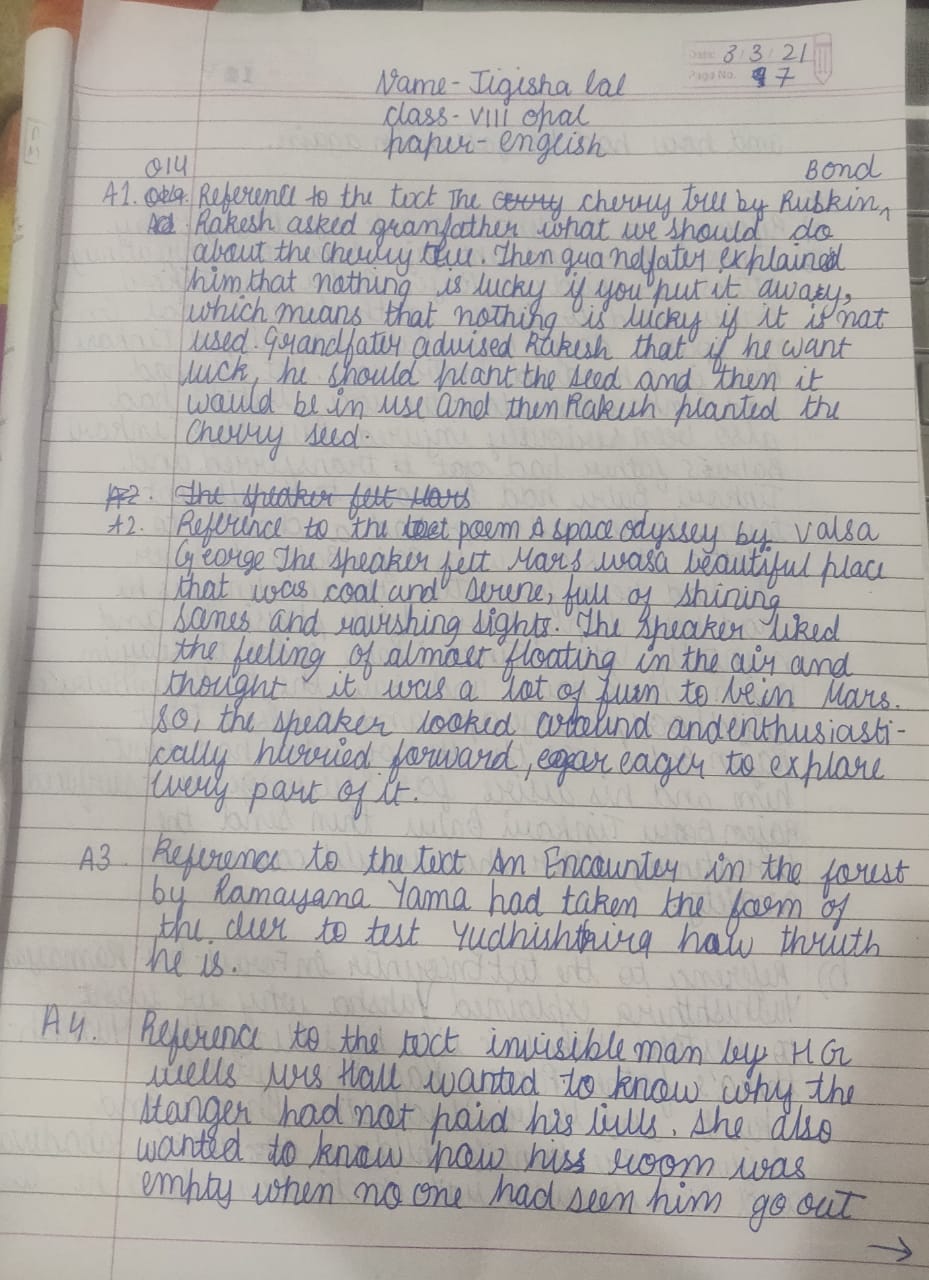 Date: 3 3 21
Page No. 97
Name- Jigisha lal
class- VIII opal
paper- english
Q14
Bond
A1. Reference to the text The cherry tree by Ruskin ^
Rakesh asked granfather what we should do
about the cherry tree. Then grandfater explained
him that nothing is lucky if you put it away,
which means that nothing is lucky if it is not
used. Grandfater advised Rakesh that if he want
luck, he should plant the seed and then it
would be in use and then Rakesh planted the
cherry seed.
A2. The speaker felt Mars
A2. Reference to the poem A space odyssey by Valsa
George The speaker felt Mars was a beautiful place
that was cool and serene, full of shining
and ravishing sights. The speaker liked
the feeling of almost floating in the air and
thought it was a lot of fum to be in Mars.
so, the speaker looked around and enthusiasti-
cally hurried forward, egar eager to explore
every part of it.
A3 Reference to the text An Encounter in the forest
by Ramayana Yama had taken the form of
the deer to test Yudhishthira how thruth
he is.
A4. Reference to the text invisible man by H G
wells Mrs Hall wanted to know why the
stanger had not paid his bills. she also
wanted to know how hiss room was
empty when no one had seen him go out
→